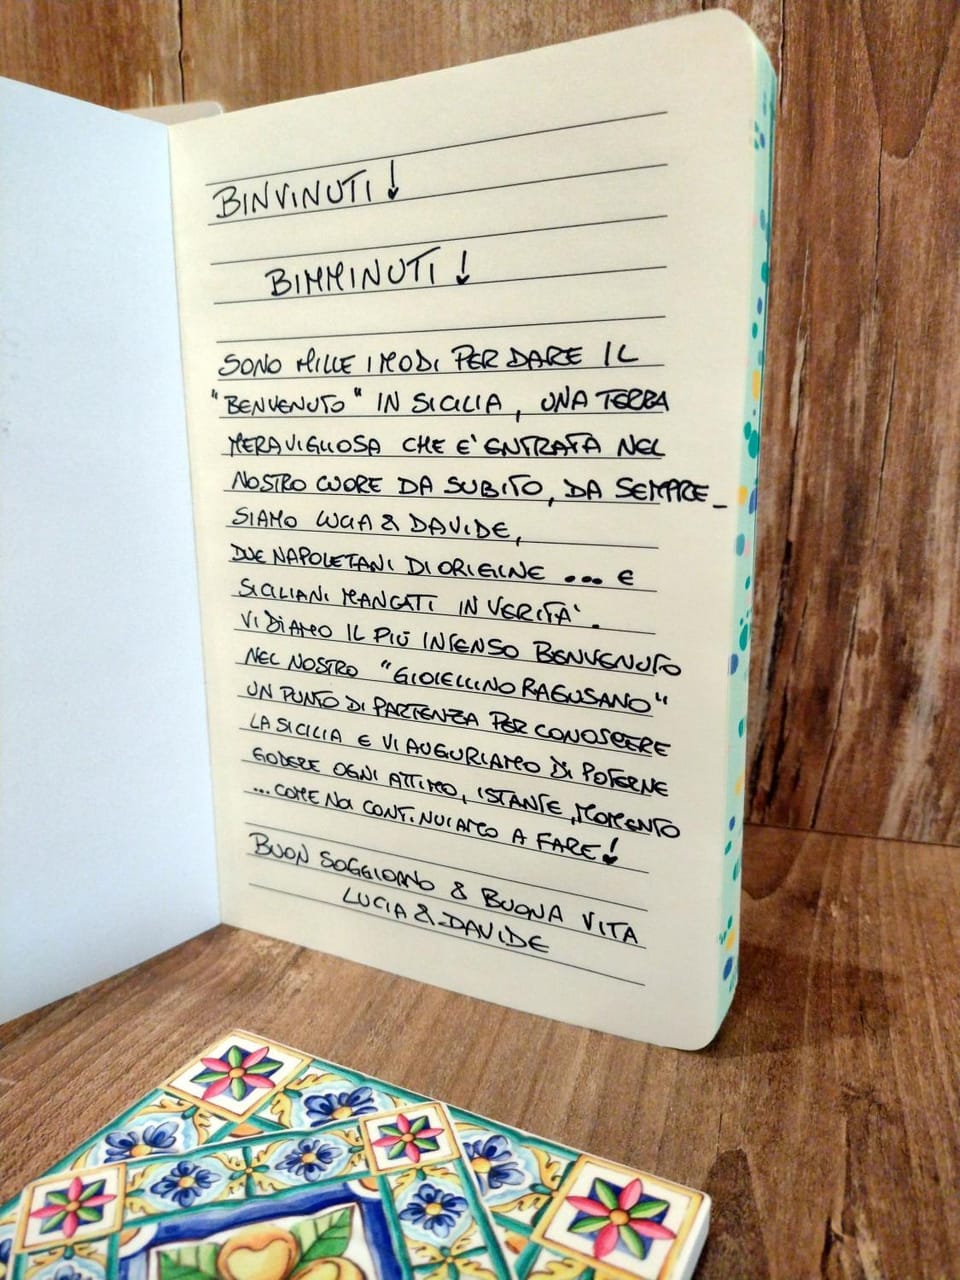 BINVINUTI!
BIMMINUTI!
SONO MILLE I MODI PER DARE IL
"BENVENUTO" IN SICILIA, UNA TERRA
MERAVIGLIOSA CHE E' ENTRATA NEL
NOSTRO CUORE DA SUBITO, DA SEMPRE_
SIAMO LUCIA & DAVIDE,
DUE NAPOLETANI DI ORIGINE ... E
SICILIANI MANCATI IN VERITA'.
VI DIAMO IL PIÙ INTENSO BENVENUTO
NEL NOSTRO "GIOIELLINO RAGUSANO"
UN PUNTO DI PARTENZA PER CONOSCERE
LA SICILIA E VI AUGURIAMO DI POTERNE
GODERE OGNI ATTIMO, ISTANTE, MOMENTO
...COME NOI CONTINUIAMO A FARE!
BUON SOGGIORNO & BUONA VITA
LUCIA & DAVIDE